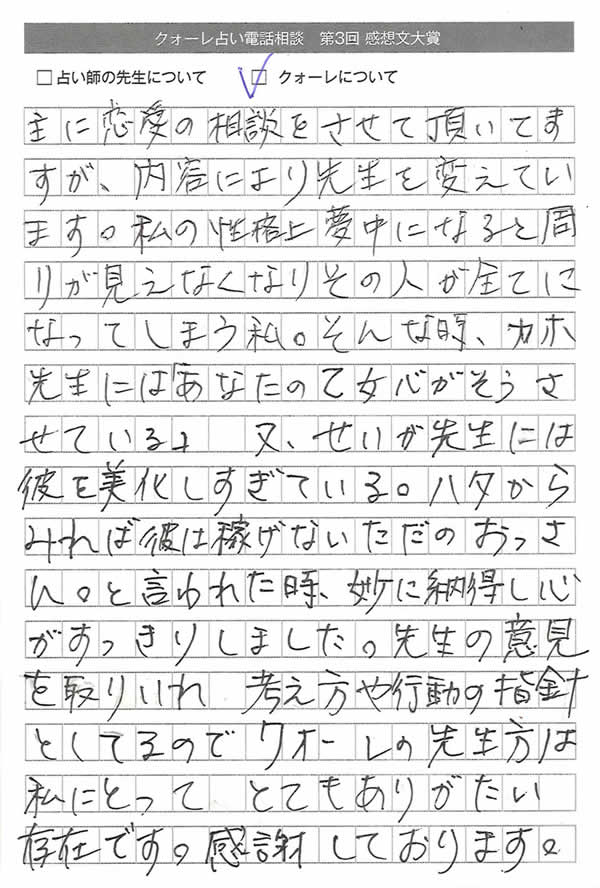 クォーレ占い電話相談　第3回 感想文大賞
□占い師の先生について　☑クォーレについて
主に恋愛の相談をさせて頂いてま
すが、内容により先生を変えてい
ます。私の性格上夢中になると周
りが見えなくなりその人が全てに
なってしまう私。そんな時、カホ
先生には「あなたの乙女心がそうさ
せている」　又、せいが先生には
彼を美化しすぎている。ハタから
みれば彼は稼げないただのおっさ
ん。と言われた時、妙に納得し心
がすっきりしました。先生の意見
を取りいれ　考え方や行動の指針
としてるのでクオーレの先生方は
私にとって　とてもありがたい
存在です。感謝しております。